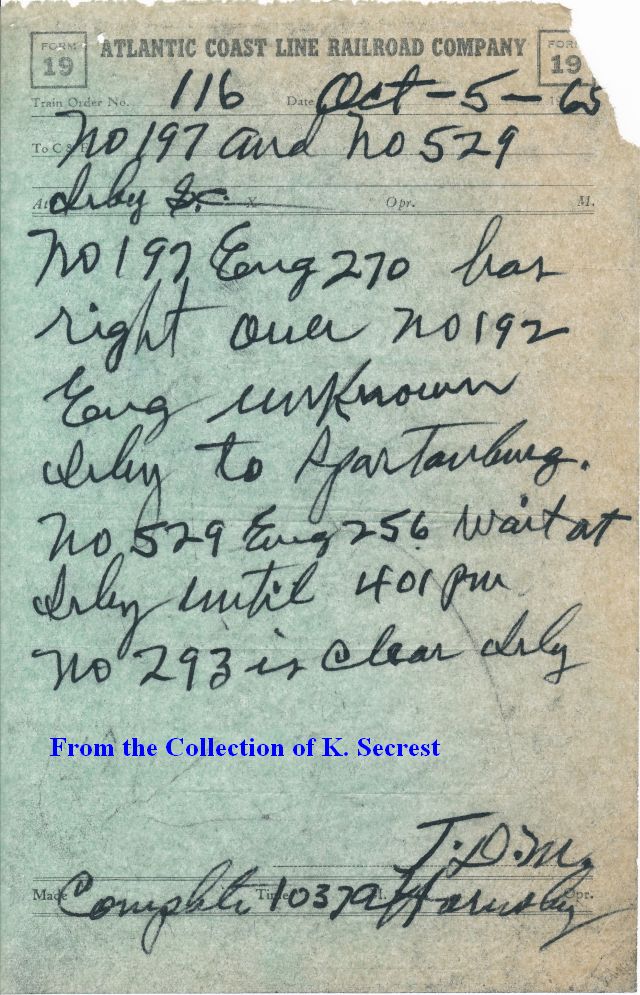 FORM 19 ATLANTIC COAST LINE RAILROAD COMPANY FORM 19
Train Order No. 116 Date Oct-5-65
To C & E No 197 and No 529
At Irby S.C. X Opr. M.
No 197 Eng 270 has
right over No 192
Eng unknown
Irby to Spartanburg.
No 529 Eng 256 Wait at
Irby until 401 pm
No 293 is clear Irby
From the Collection of K. Secrest
J.D.M.
Made Complete Time 1037A M. Hornsby Opr.